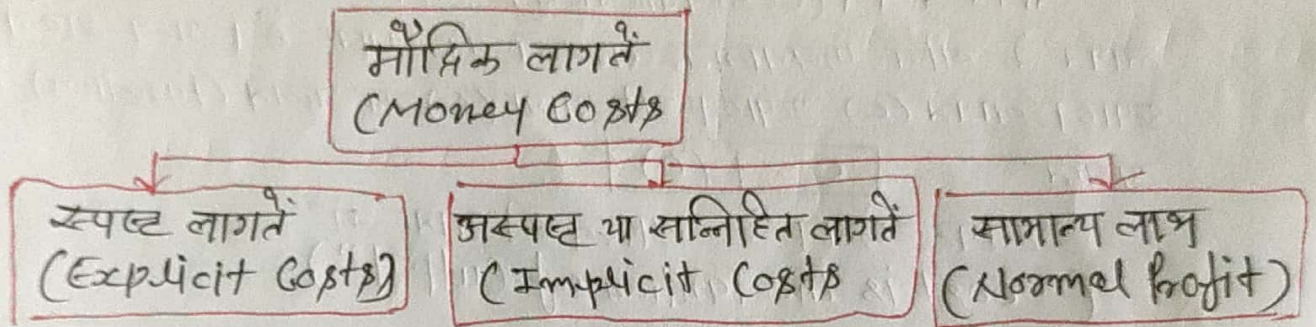 मौद्रिक लागतें
(Money Costs
स्पष्ट लागतें
(Explicit Costs)
अस्पष्ट या सन्निहित लागतें
(Implicit Costs
सामान्य लाभ
(Normal Profit)